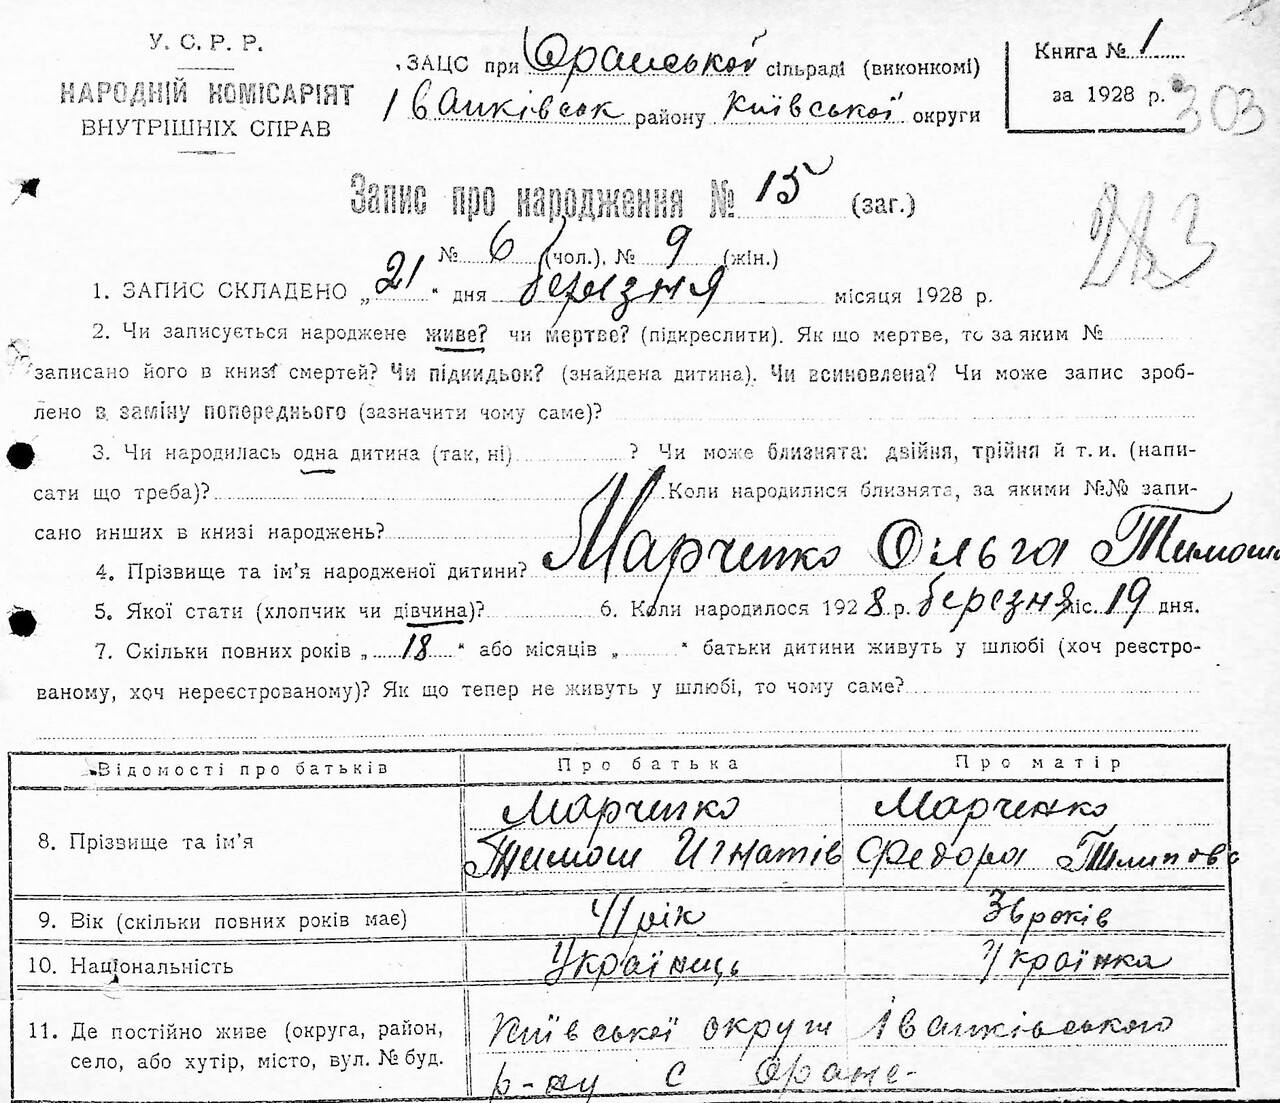 У. С. Р. Р.
НАРОДНІЙ КОМІСАРІЯТ
ВНУТРІШНІХ СПРАВ
ЗАЦС при Оранської сільраді (виконкомі)
Іванківськ району Київської округи
Книга № 1
за 1928 р.
303
Запис про народження № 15 (заг.)
№ 6 (чол.), № 9 (жін.)
1. ЗАПИС СКЛАДЕНО „21" дня березня місяця 1928 р.
2. Чи записується народжене живе? чи мертве? (підкреслити). Як що мертве, то за яким №
записано його в книзі смертей? Чи підкидьок? (знайдена дитина). Чи всиновлена? Чи може запис зроб-
лено в заміну попереднього (зазначити чому саме)?
3. Чи народилась одна дитина (так, ні) ? Чи може близнята: двійня, трійня й т. и. (напи-
сати що треба)? Коли народилися близнята, за якими №№ запи-
сано инших в книзі народжень?
4. Прізвище та ім'я народженої дитини? Марченко Ольга Тимош
5. Якої стати (хлопчик чи дівчина)? 6. Коли народилося 1928 р. березня міс. 19 дня.
7. Скільки повних років „18" або місяців „ " батьки дитини живуть у шлюбі (хоч реєстро-
ваному, хоч нереєстрованому)? Як що тепер не живуть у шлюбі, то чому саме?
Відомості про батьків Про батька Про матір
8. Прізвище та ім'я Марченко Тимош Игнатів Марченко Федора
9. Вік (скільки повних років має) 41 рік 36 років
10. Національність Українець Українка
11. Де постійно живе (округа, район, Київської округи Іванківського
село, або хутір, місто, вул. № буд. р-ну с Оране-